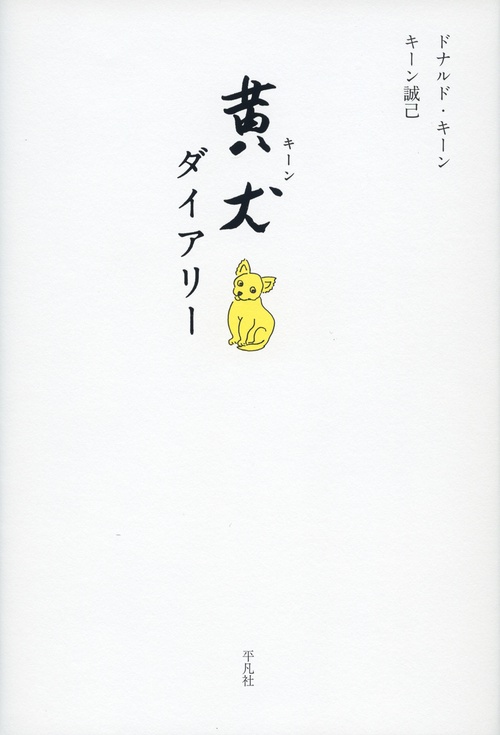 ドナルド・キーン
キーン誠己
黄犬
キーン
ダイアリー
平凡社